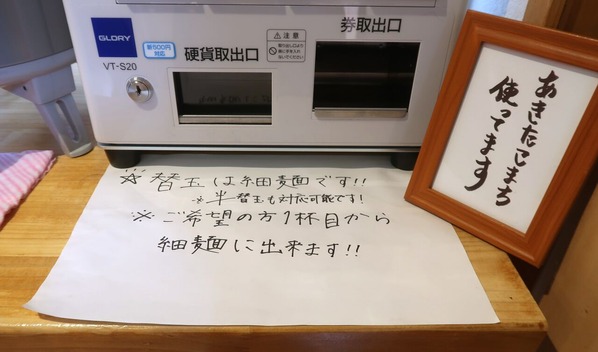 GLORY
VT-S20
新500円
対応
硬貨取出口
⚠注意
券取出口
あきたこまち
使ってます
☆替玉は細麺です!!
※半替玉も対応可能です!
※ご希望の方1杯目から
細麺に出来ます!!